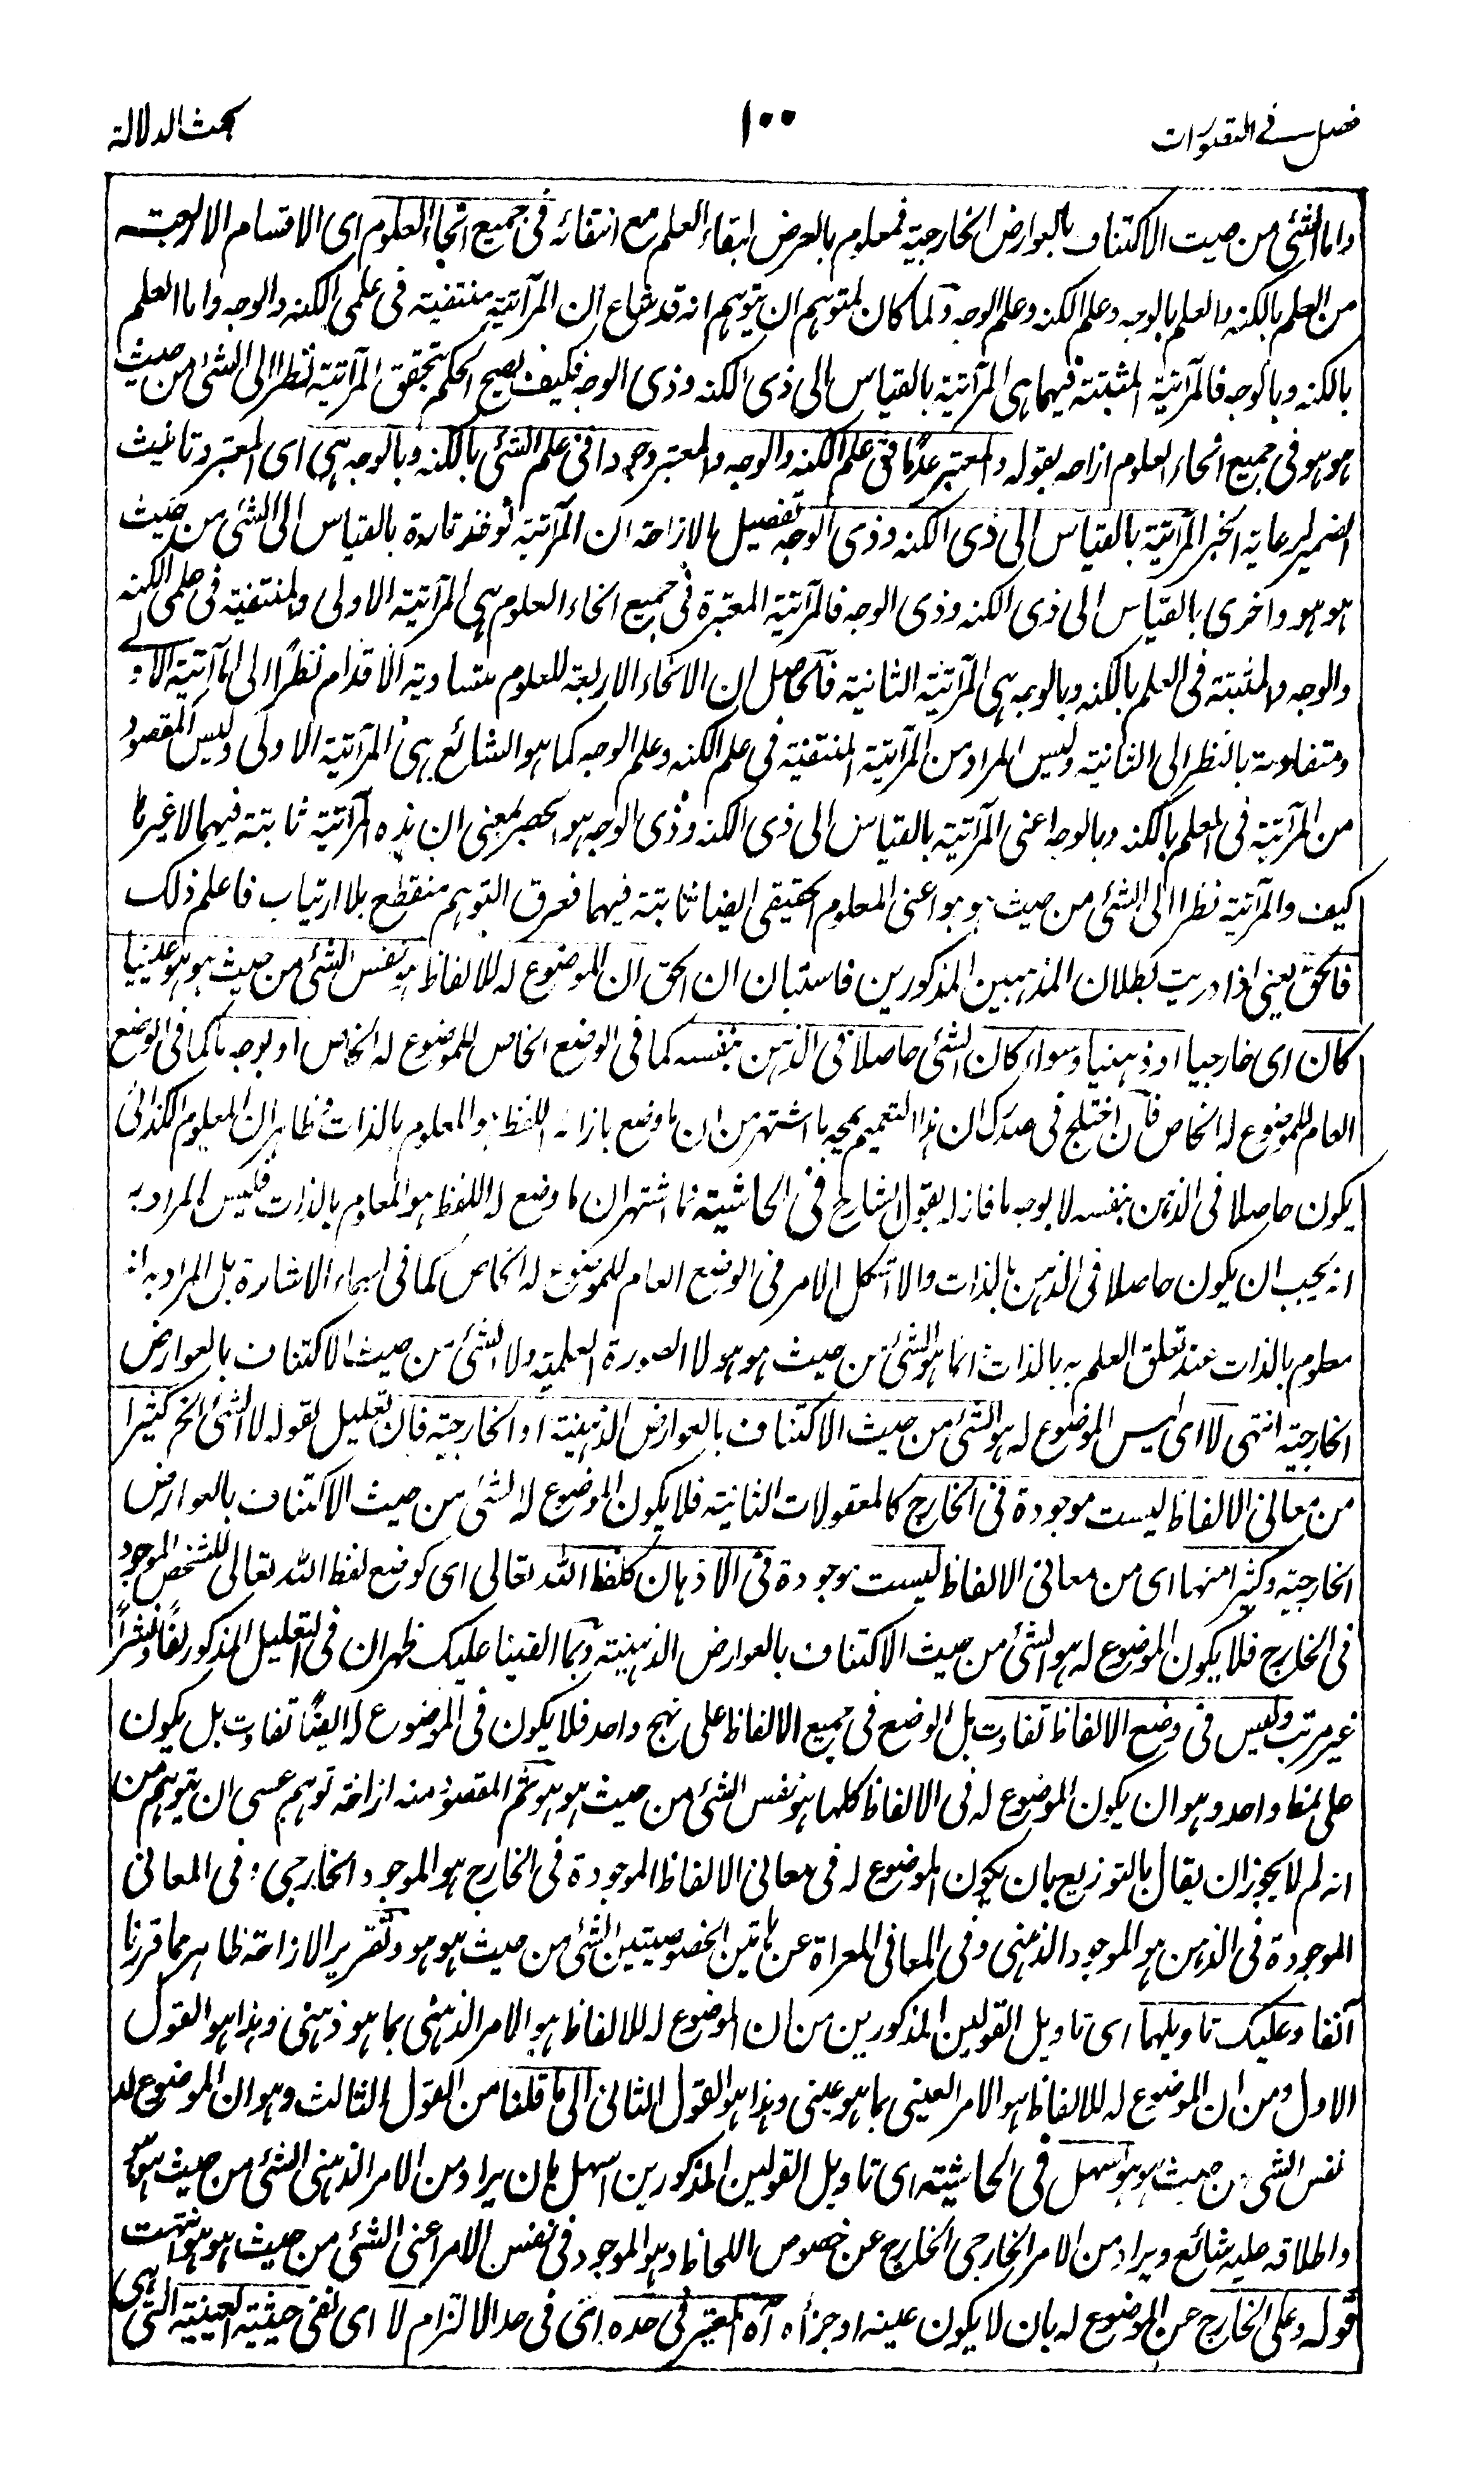 فصل في التصورات
١٠٠
بحث الدلالة
واما الشئ من حيث الاكتناف بالعوارض الخارجية فمعلوم بالعرض لبقاء العلم مع انتفائه في جميع انحاء العلوم اى الاقسام الاربعة
من العلم بالكنه والعلم بالوجه وعلم الكنه وعلم الوجه ولما كان لمتوهم ان يتوهم انه قد شاع ان المرآتية منتفية في علمى الكنه والوجه واما العلم
بالكنه وبالوجه فالمرآتية المثبتة فيهما هى المرآتية بالقياس الى ذى الكنه وذى الوجه فكيف يصح الحكم بتحقق المرآتية نظرا الى الشئ من حيث
هو هو في جميع انحاء العلوم ازاحه بقوله والمعتبر عدمًا في علم الكنه والوجه والمعتبر وجودا في علم الشئ بالكنه وبالوجه هى اى المعتبر وتانيث
الضمير لرعاية الخبر المرآتية بالقياس الى ذى الكنه وذى الوجه تفصيل الازاحة ان المرآتية توخذ تارة بالقياس الى الشئ من حيث
هو هو واخرى بالقياس الى ذى الكنه وذى الوجه فالمرآتية المعتبرة في جميع انحاء العلوم هى المرآتية الاولى والمنتفية في علمى الكنه
والوجه والمثبتة في العلم بالكنه وبالوجه هى المرآتية الثانية فالحاصل ان الانحاء الاربعة للعلوم متساوية الاقدام نظرًا الى المرآتية الاولے
ومتفاوتة بالنظر الى الثانية وليس المراد من المرآتية المنتفية في علم الكنه وعلم الوجه كما هو الشائع هى المرآتية الاولى وليس المقصود
من المرآتية في العلم بالكنه وبالوجه اعنى المرآتية بالقياس الى ذى الكنه وذى الوجه هو الحصر بمعنى ان هذه المرآتية ثابتة فيهما لا غيرها
كيف والمرآتية نظرا الى الشئ من حيث هو هو اعنى المعلوم الحقيقى ايضا ثابتة فيهما فعرق التوهم منقطع بلا ارتياب فاعلم ذلك
فالحق يعنى اذا دريت بطلان المذهبين المذكورين فاستبان ان الحق ان الموضوع له للالفاظ هو نفس الشئ من حيث هو هو عينيا
كان اى خارجيا او ذهنيا وسواء كان الشئ حاصلا في الذهن بنفسه كما في الوضع الخاص للموضوع له الخاص او بوجه ما كما في الوضع
العام للموضوع له الخاص فان اختلج في صدرك ان هذا التعميم يمجه ما اشتهر من ان ما وضع بازائه اللفظ هو المعلوم بالذات وظاهر ان المعلوم الكذائى
يكون حاصلا في الذهن بنفسه لا بوجه ما فازله بقول الشارح في الحاشية فما اشتهر ان ما وضع له اللفظ هو المعلوم بالذات فليس المراد به
انه يجب ان يكون حاصلا في الذهن بالذات والا اشكل الامر في الوضع العام للموضوع له الخاص كما في اسماء الاشارة بل المراد به انه
معلوم بالذات عند تعلق العلم به بالذات انما هو الشئ من حيث هو هو لا الصورة العلمية ولا الشئ من حيث الاكتناف بالعوارض
الخارجية انتهى لا اى ليس الموضوع له هو الشئ من حيث الاكتناف بالعوارض الذهنية او الخارجية فان تعليل لقوله لا الشئ الخ كثيرا
من معانى الالفاظ ليست موجودة في الخارج كالمعقولات الثانية فلا يكون الموضوع له الشئ من حيث الاكتناف بالعوارض
الخارجية وكثيرا منها اى من معانى الالفاظ ليست موجودة في الاذهان كلفظ الله تعالى اى كوضع لفظ الله تعالى للشخص الموجود
في الخارج فلا يكون الموضوع له هو الشئ من حيث الاكتناف بالعوارض الذهنية وبما القينا عليك ظهر ان في التعليل المذكور لفًا ونشرًا
غير مرتب وليس في وضع الالفاظ تفاوت بل الوضع في جميع الالفاظ على نهج واحد فلا يكون في الموضوع له ايضًا تفاوت بل يكون
على نمط واحد وهو ان يكون الموضوع له في الالفاظ كلها هو نفس الشئ من حيث هو هو ثم المقصود منه ازاحة توهم عسى ان يتوهم من
انه لم لا يجوز ان يقال بالتوزيع بان يكون الموضوع له في معانى الالفاظ الموجودة في الخارج هو الموجود الخارجى وفى المعانى
الموجودة في الذهن هو الموجود الذهنى وفى المعانى المعراة عن هاتين الخصوصيتين الشئ من حيث هو هو وتقرير الازاحة ظاهر مما قررنا
آنفا وعليك تاويلهما اى تاويل القولين المذكورين من ان الموضوع له للالفاظ هو الامر الذهنى بما هو ذهنى وهذا هو القول
الاول ومن ان الموضوع له للالفاظ هو الامر العينى بما هو عينى وهذا هو القول الثانى الى ما قلنا من القول الثالث وهو ان الموضوع له
نفس الشئ من حيث هو هو اسهل في الحاشية اى تاويل القولين المذكورين اسهل بان يراد من الامر الذهنى الشئ من حيث هو هو
واطلاقه عليه شائع ويراد من الامر الخارجى الخارج عن خصوص اللحاظ وهو الموجود في نفس الامر اعنى الشئ من حيث هو هو انتهت
قوله وعلى الخارج عن الموضوع له بان لا يكون عينه او جزأه آه المعتبر في حده اى في حد الالتزام لا اى نفى حيثية العينية التى هى